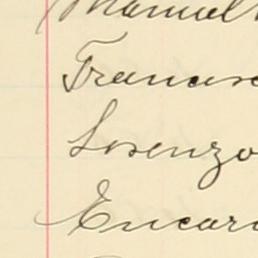 Manuel
Francisc
Lorenzo
Encar